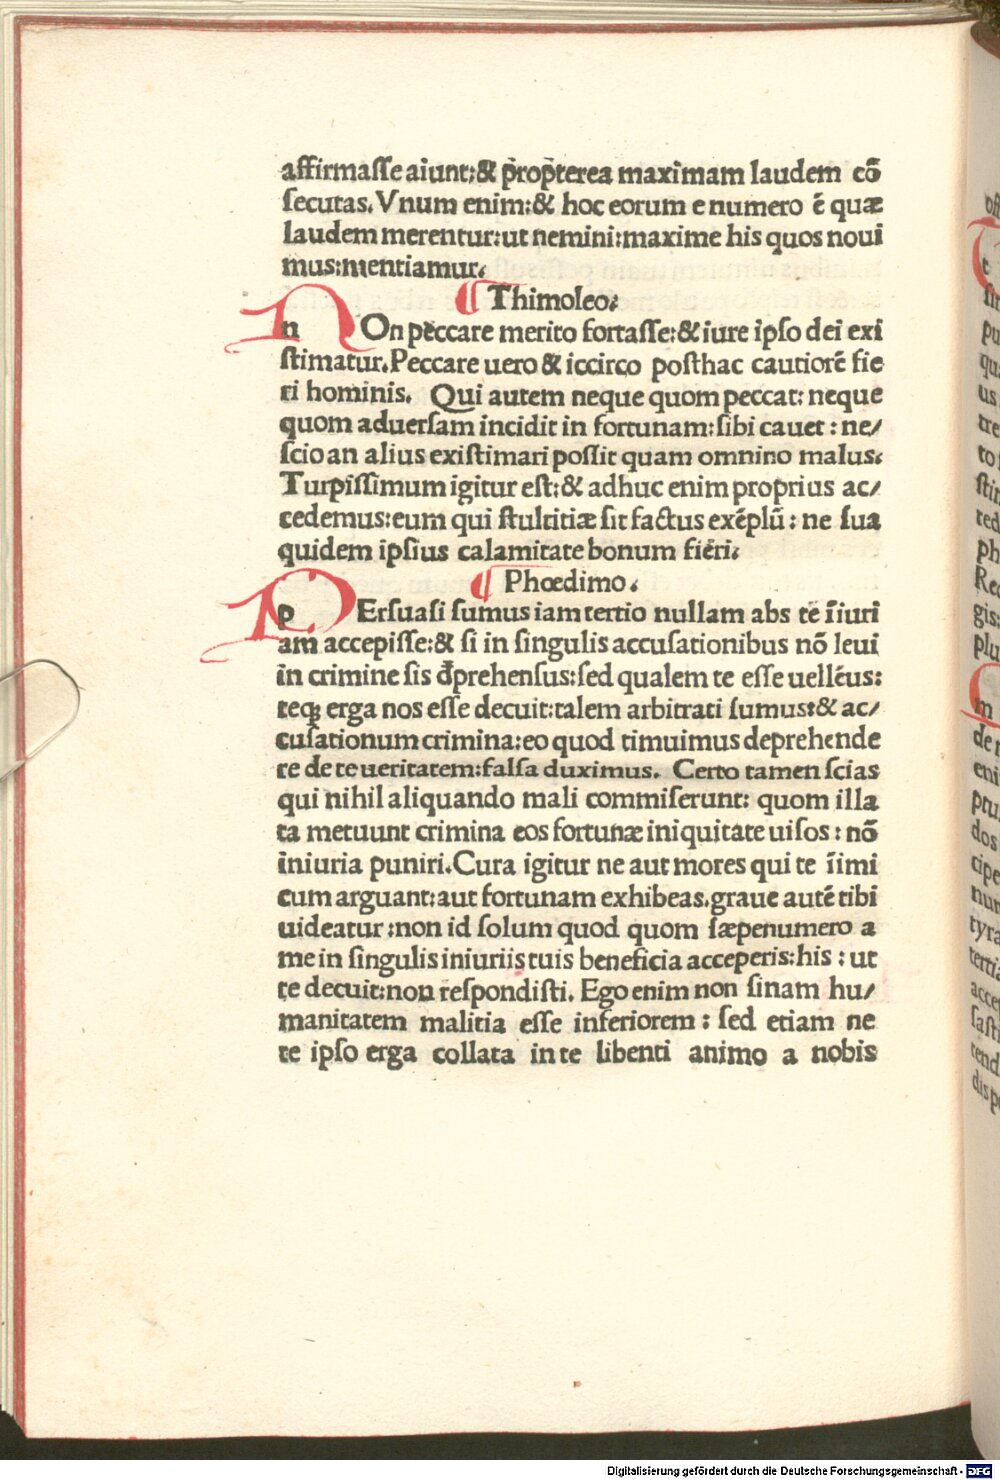 affirmaſſe aiunt:& ꝓpterea maximam laudem cō
ſecutas. Vnum enim:& hoc eorum e numero ē quæ
laudem merentur:ut nemini:maxime his quos noui
mus:mentiamur.
¶ Thimoleo.
NOn peccare merito fortaſſe:& iure ipſo dei exi
ſtimatur. Peccare uero & iccirco poſthac cautiorē fie
ri hominis. Qui autem neque quom peccat: neque
quom aduerſam incidit in fortunam:ſibi cauet : ne/
ſcio an alius exiſtimari poſſit quam omnino malus.
Turpiſſimum igitur eſt:& adhuc enim proprius ac/
cedemus:eum qui ſtultitiæ ſit factus exēplū: ne ſua
quidem ipſius calamitate bonum fieri.
¶ Phœdimo.
PErſuaſi ſumus iam tertio nullam abs te īiuri
am accepiſſe:& ſi in ſingulis accuſationibus nō leui
in crimine ſis dꝑrehenſus:ſed qualem te eſſe uellēus:
teqꝫ erga nos eſſe decuit:talem arbitrati ſumus:& ac/
cuſationum crimina:eo quod timuimus deprehende
re de te ueritatem:falſa duximus. Certo tamen ſcias
qui nihil aliquando mali commiſerunt: quom illa
ta metuunt crimina eos fortunæ iniquitate uiſos : nō
iniuria puniri. Cura igitur ne aut mores qui te īimi
cum arguant:aut fortunam exhibeas.graue autē tibi
uideatur :non id ſolum quod quom ſæpenumero a
me in ſingulis iniuriis tuis beneficia acceperis:his : ut
te decuit:non reſpondiſti. Ego enim non ſinam hu/
manitatem malitia eſſe inferiorem : ſed etiam ne
te ipſo erga collata in te libenti animo a nobis
Digitalisierung gefördert durch die Deutsche Forschungsgemeinschaft - DFG